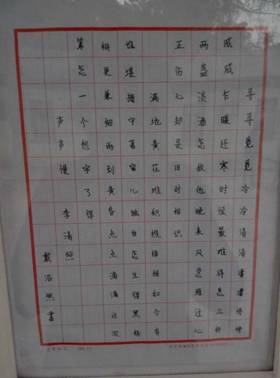 寻寻觅觅冷冷清清凄凄惨惨
戚戚乍暖还寒时候最难将息三杯
两盏淡酒怎敌他晚来风急雁过也
正伤心却是旧时相识
满地黄花堆积憔悴损如今有
谁堪摘守着窗儿独自怎生得黑梧
桐更兼细雨到黄昏点点滴滴这次
第怎一个愁字了得
声声慢 李清照